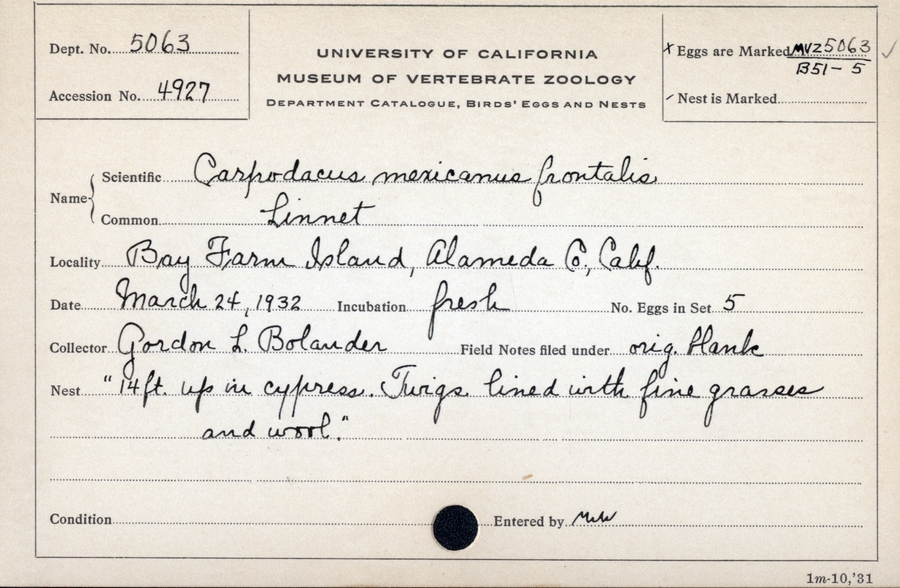 Dept. No. 5063
Accession No. 4927
UNIVERSITY OF CALIFORNIA
MUSEUM OF VERTEBRATE ZOOLOGY
DEPARTMENT CATALOGUE, BIRDS' EGGS AND NESTS
x Eggs are Marked MVZ5063 ✓
B51-5
✓ Nest is Marked
Name { Scientific Carpodacus mexicanus frontalis
Common Linnet
Locality Bay Farm Island, Alameda Co., Calif.
Date March 24, 1932 Incubation fresh No. Eggs in Set 5
Collector Gordon L. Bolander Field Notes filed under orig. blank
Nest "14 ft. up in cypress. Twigs lined with fine grasses
and wool."
Condition Entered by
1m-10,'31